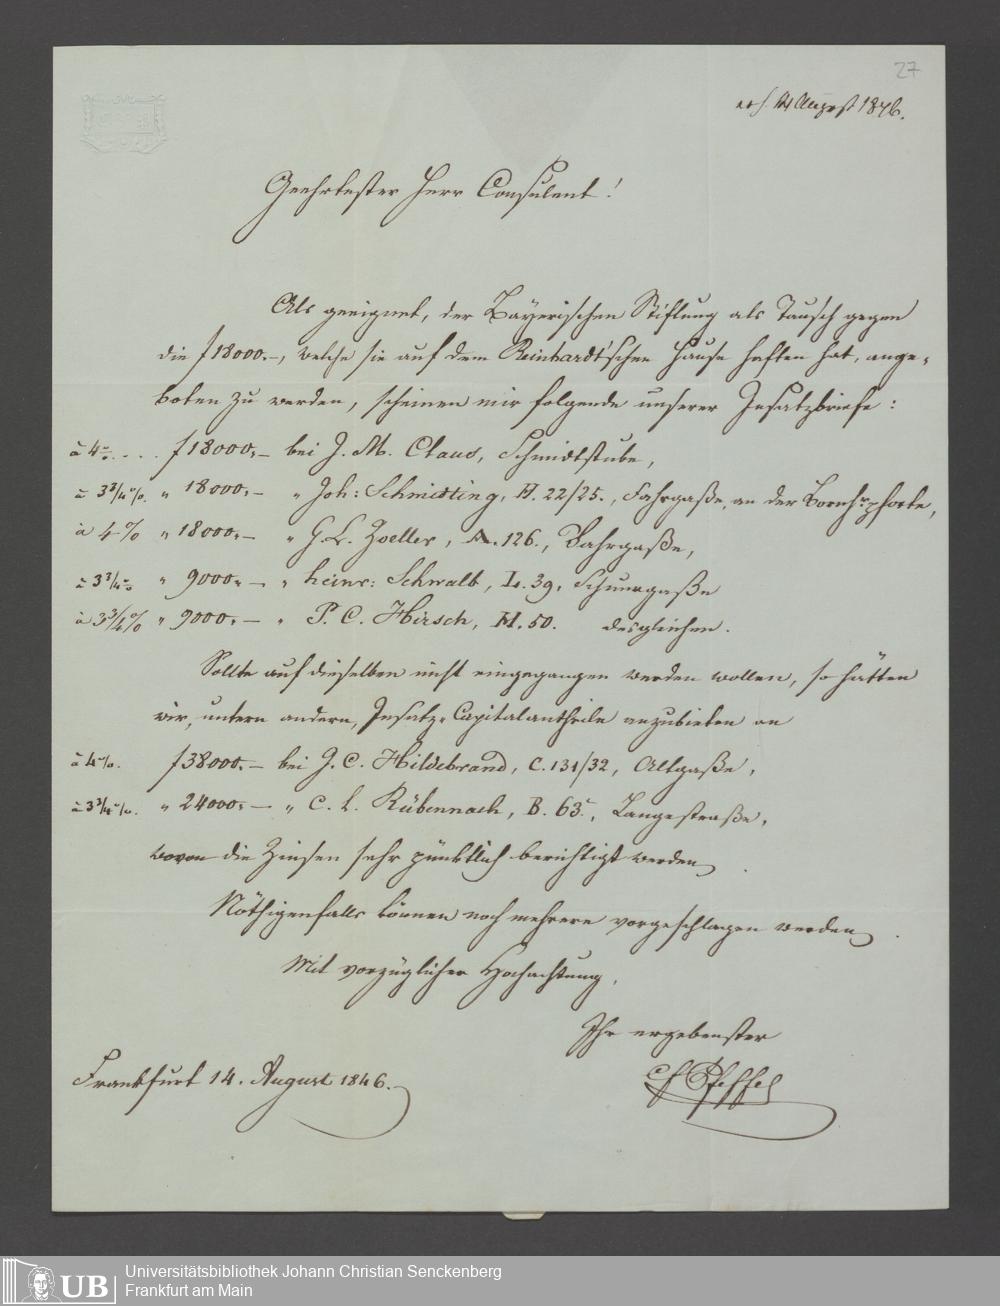 27
erh. 14 August 1846.
Geehrtester Herr Consulent!
Als geeignet, der Bayerischen Stiftung als Tausch gegen
die f 18000.–, welche sie auf dem Reinhardt'schen Hause haften hat, ange-
boten zu werden, scheinen mir folgende unserer Insatzbriefe:
à 4%.... f 18000.– bei J. M. Claus, Schmidtstube,
à 3¾%. " 18000.– " Joh: Schmidting, H. 22/25., Fahrgaße, an der Bornh. pforte,
à 4% " 18000.– " G. L. Zoeller, A. 126., Fahrgaße,
à 3¾% " 9000.– " Heinr: Schwalb, L. 39, Schnurgaße
à 3¾% " 9000.– " P. C. Hirsch, H. 50. desgleichen.
Sollte auf dieselben nicht eingegangen werden wollen, so hätten
wir, untern andern, Insatz-Capitalantheile anzubieten an
à 4%. f 38000.– bei J. C. Hildebrand, C. 131/32, Altgaße,
à 3¾%. " 24000.– " C. L. Rübennach, B. 63., Langestraße,
wovon die Zinsen sehr pünktlich berichtigt werden.
Nöthigenfalls können noch mehrere vorgeschlagen werden.
Mit vorzüglicher Hochachtung,
Ihr ergebenster
Pfeffel
Frankfurt 14. August 1846.
UB
Universitätsbibliothek Johann Christian Senckenberg
Frankfurt am Main